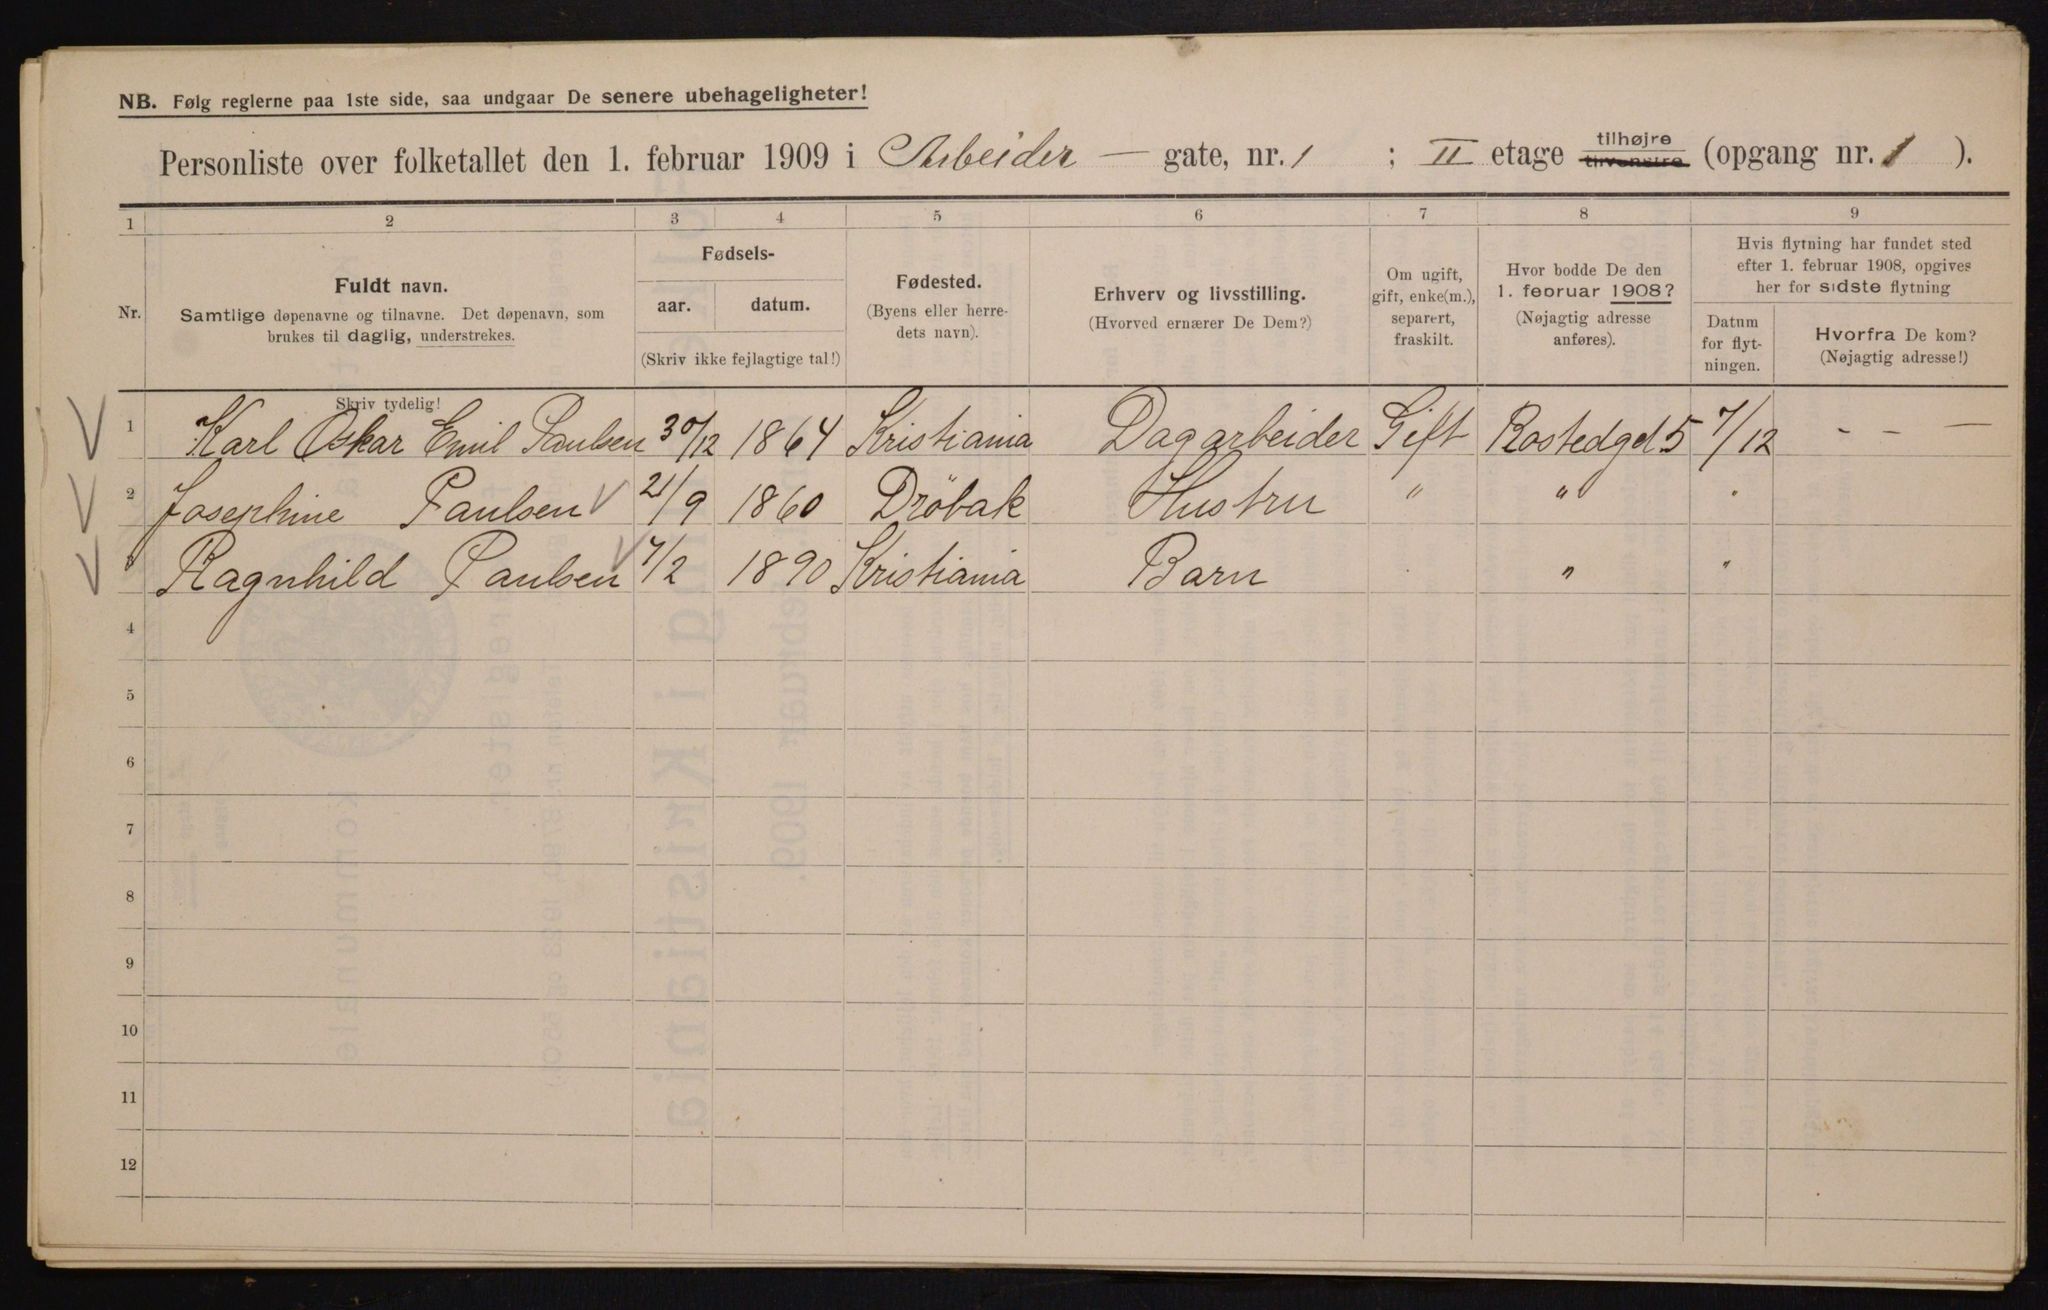 NB. Følg reglerne paa 1ste side, saa undgaar De senere ubehageligheter!
Personliste over folketallet den 1. februar 1909 i Arbeider — gate, nr. 1 ; II etage tilhøjre tilvenstre (opgang nr. 1 ).
1 2 3 4 5 6 7 8 9
Nr.
Fuldt navn.
Samtlige døpenavne og tilnavne. Det døpenavn, som
brukes til daglig, understrekes.
Fødsels-
aar. datum.
(Skriv ikke fejlagtige tal!)
Fødested.
(Byens eller herre-
dets navn).
Erhverv og livsstilling.
(Hvorved ernærer De Dem?)
Om ugift,
gift, enke(m.),
separert,
fraskilt.
Hvor bodde De den
1. februar 1908?
(Nøjagtig adresse
anføres).
Hvis flytning har fundet sted
efter 1. februar 1908, opgives
her for sidste flytning
Datum
for flyt-
ningen.
Hvorfra De kom?
(Nøjagtig adresse!)
Skriv tydelig!
1 Karl Oskar Emil Paulsen 30/12 1864 Kristiania Dagarbeider Gift Rostedgt 5 7/12 - - —
2 Josephine Paulsen 21/9 1860 Dröbak Hustru " " "
3 Ragnhild Paulsen 7/2 1890 Kristiania Barn " "
4
5
6
7
8
9
10
11
12